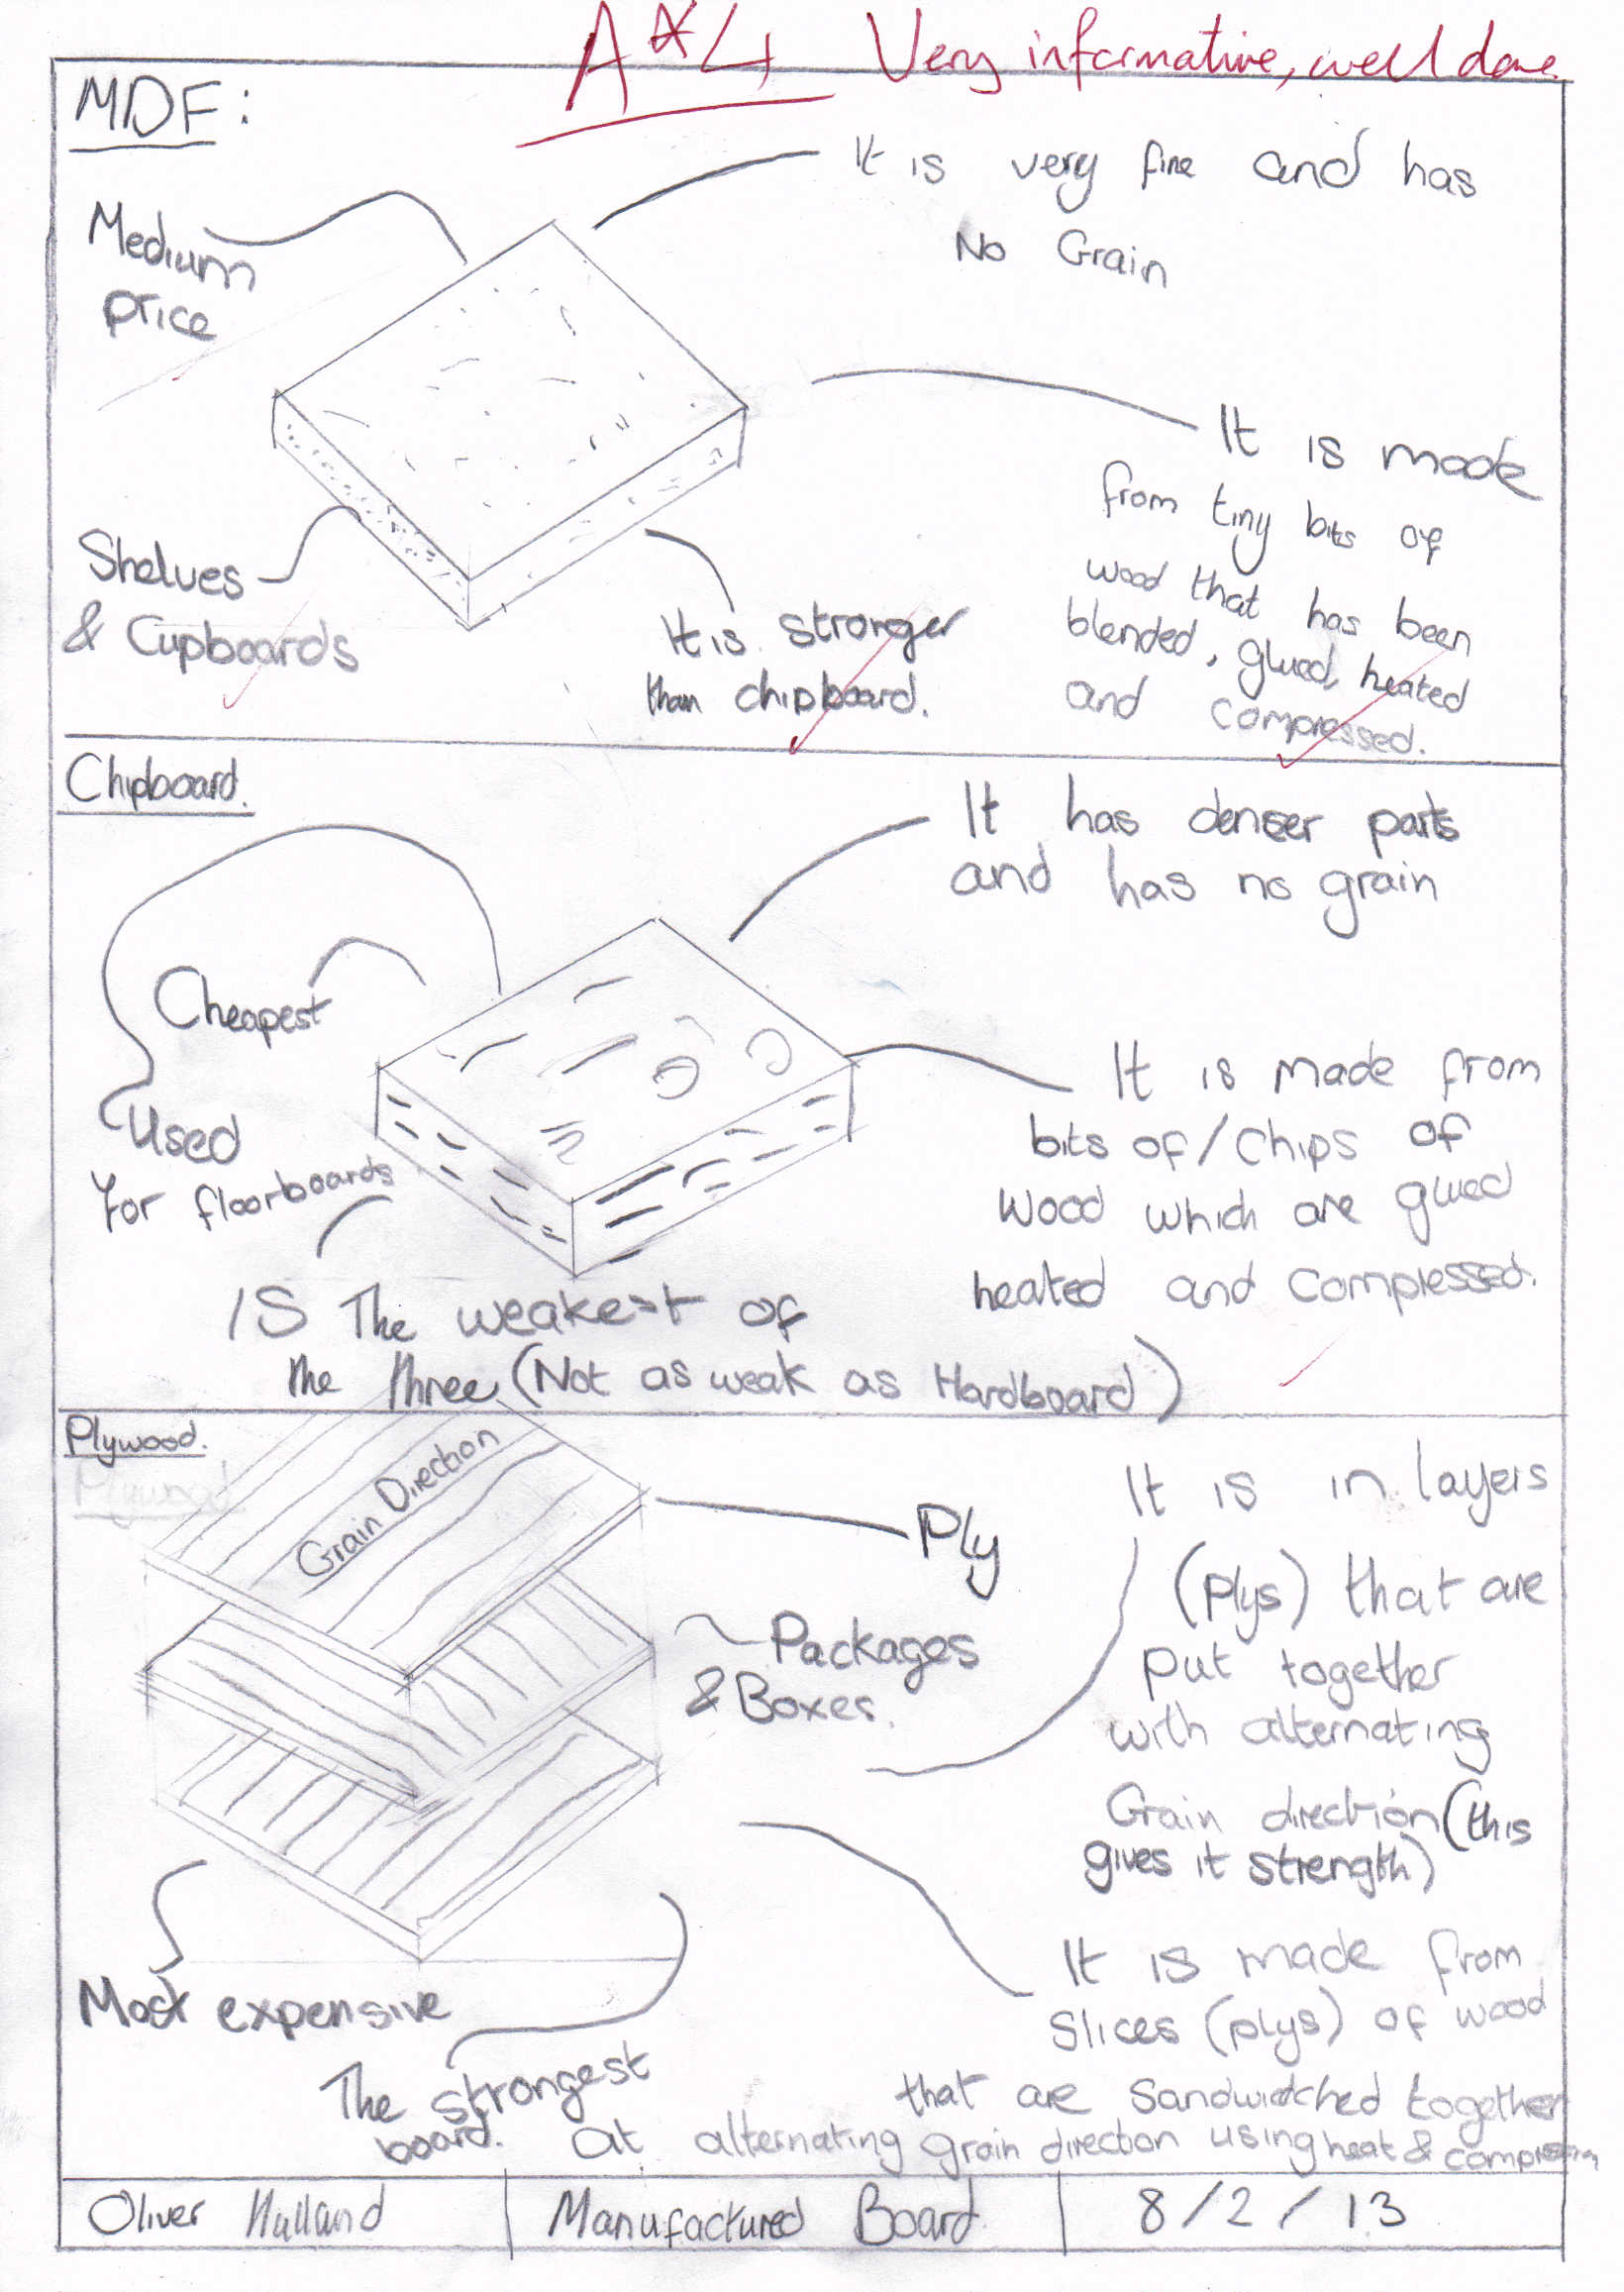 A*4 Very informative, well done
MDF:
It is very fine and has
No Grain
Medium
price
It is made
from tiny bits of
wood that has been
blended, glued, heated
and compressed.
Shelves
& Cupboards
It is stronger
than chipboard.
Chipboard.
It has denser parts
and has no grain
Cheapest
Used
for floorboards
It is made from
bits of/chips of
wood which are glued
heated and compressed.
IS The weakest of
the three (Not as weak as Hardboard)
Plywood.
Plywood.
Grain Direction
Ply
Packages
& Boxes.
It is in layers
(plys) that are
put together
with alternating
Grain direction (this
gives it strength)
Most expensive
The strongest
board.
It is made from
Slices (plys) of wood
that are Sandwitched together
at alternating grain direction using heat & compression
Oliver Hulland
Manufactured Board
8/2/13